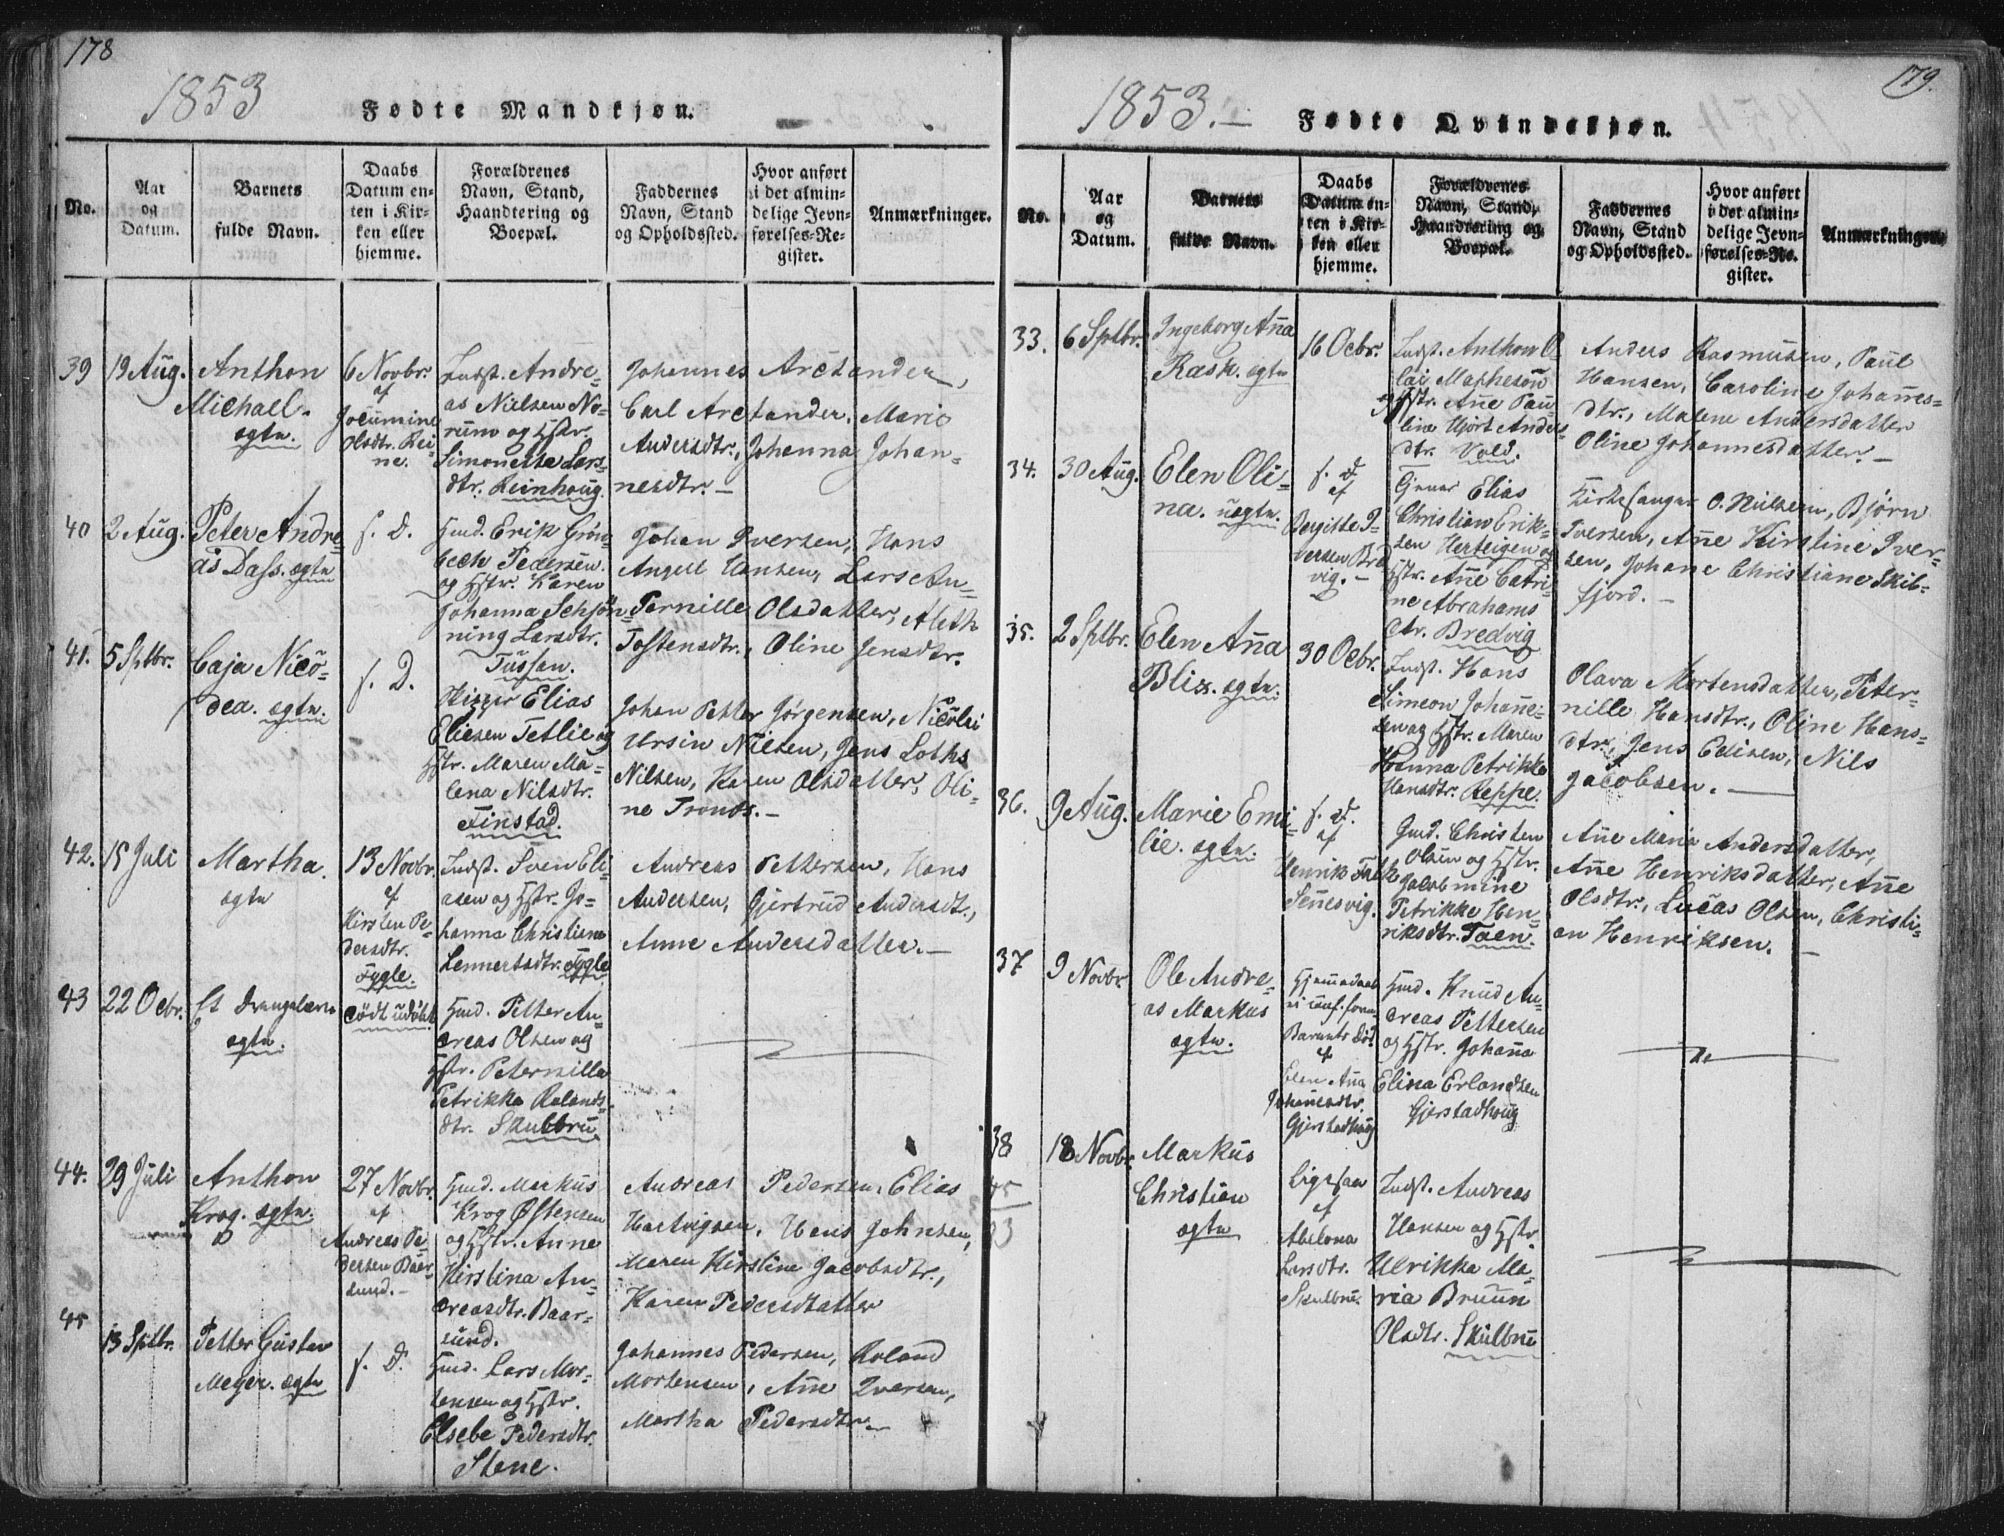 178
1853
Fødte Mandkjøn.
No.
Aar
og
Datum.
Barnets
fulde Navn.
Daabs
Datum en-
ten i Kir-
ken eller
hjemme.
Forældrenes
Navn, Stand,
Haandtering og
Boepæl.
Faddernes
Navn, Stand
og Opholdssted.
Hvor anført
i det almin-
delige Jevn-
førelses-Re-
gister.
Anmærkninger.
39
19 Aug.
Anthon
Michael.
ægte.
6 Novbr.
af
Jocumine
Olsdtr. Rei-
ne.
Indst. Andre-
as Nielsen No-
rum og Hstr.
Simonette Lars-
dtr. Reinhoug.
Johannes Arctander,
Carl Arctander, Marie
Andersdtr., Johanna Johan-
nesdtr. —
40
2 Aug.
Peter Andre-
as Dass. ægte
s. D.
Gmd. Erik Grön-
bech Pedersen
og Hstr. Karen
Johanna Schjön-
ning Larsdtr.
Tussen.
Johan Iversen, Hans
Angell Hansen, Lars An-
Pernille Olsdatter, Aleth
Tostensdtr., Oline Jensdtr.
41.
5 Sptbr.
Caja Nico-
dea. ægte.
s. D.
Elias
Eliesen Tetlie og
Hstr. Maren Ma-
lena Nilsdtr.
Finstad.
Johan Petter Jørgensen, Nicolai
Ursin Nielsen, Jens Loths
Nilsen, Karen Olsdatter, Oli-
ne Tronds. —
42.
15 Juli
Martha.
ægte
13 Novbr.
af
Kirsten Pe-
dersdtr.
Fygle.
Indst. Sven Eli-
asen og Hstr. Jo-
hanna Christiane
Lennertsdtr. Fygle.
Andreas Pettersen, Hans
Andersen, Gjertrud Andersdtr.,
Anne Andersdatter. —
43
22 Ocbr.
Et Drengebarn
ægte.
Gmd. Petter An-
dreas Olsen og
Hstr. Pernilla
Petrikka Rolands-
dtr. Skulbru
44.
29 Juli
Anthon
Krog. ægte.
27 Novbr.
af
Andreas Pe-
dersen Baar-
sund. —
Gmd. Markus
Krog Østensen
og Hstr. Anne
Kirstina An-
dreasdtr. Baar-
sund.
Andreas Pedersen, Elias
Hartvigsen, Hans Johnsen,
Maren Kirstine Jacobsdtr.,
Karen Pedersdatter
45
13 Sptbr.
Petter Gustav
Meyer. ægte
s. D.
Gmd. Lars Mor-
tensen og Hstr.
Elsebe Pedersdtr.
Stene.
Johannes Pedersen, Roland
Mortensen, Ane Iversen,
Martha Pedersdtr.
179.
1853. —
Fødte Qvindekjøn.
No.
Aar
og
Datum.
Barnets
fulde Navn.
Daabs
Datum en-
ten i Kir-
ken eller
hjemme.
Forældrenes
Navn, Stand,
Haandtering og
Boepæl.
Faddernes
Navn, Stand
og Opholdssted.
Hvor anført
i det almin-
delige Jevn-
førelses-Re-
gister.
Anmærkninger.
33.
6 Sptbr.
Ingeborg Aña
Rask. ægte
16 Ocbr.
Indst. Anthon O-
lai Matheson
og Hstr. Ane Pau-
line Hjort Anders-
dtr. Vold.
Anders Rasmusen, Paul
Hansen, Caroline Johañes-
dtr., Malene Andersdatter
Oline Johannesdatter. —
34.
30 Aug.
Elen Oli-
na. uægte.
s. D
af
Bergitte I-
versen Bred-
vig. —
Tjener Elias
Christian Erik-
sen Herteigen og
Hstr. Añe Catri-
ne Abrahams
dtr. Bredvig
Kirkesanger O. Nielsen, Bjørn
Iversen, Añe Kirstine Iver-
sen, Johane Christiane Skib-
fjord. —
35.
2 Sptbr.
Elen Aña
Blix. ægte.
30 Ocbr.
Indst. Hans
Simeon Johañe-
sen og Hstr. Maren
Hanna Petrikke
Hansdtr. Reppe.
Olava Mortensdatter, Peter-
nille Hansdtr., Oline Hans-
dtr., Jens Edisen, Nils
Jacobsen. —
36.
9 Aug.
Marie Emi-
lie. ægte.
s. D.
af
Henrik Falk
Señesvig.
Gmd. Christen
Olsen og Hstr.
Jacobmine
Petrikke Hen-
riksdtr. Toen.
Añe Maria Andersdatter,
Añe Henriksdatter, Añe
Olsdtr., Lucas Olsen, Christi-
an Henriksen. —
37
9 Novbr.
Ole Andre-
as Markus
ægte.
Hjemmedøbt
Barnets Død
af
Elen Aña
Johanesdtr.
Gjerstadhoug
Gmd. Knud An-
dreas Pettersen
og Hstr. Johana
Elina Erlandsen
Gjerstadhoug
38
18 Novbr.
Markus
Christian
ægte
Ligesaa
af
Abelona
Larsdtr.
Skulbru.
Indst. Andreas
Hansen og Hstr.
Ulrikka Ma-
ria Bruun
Olsdtr. Skulbru